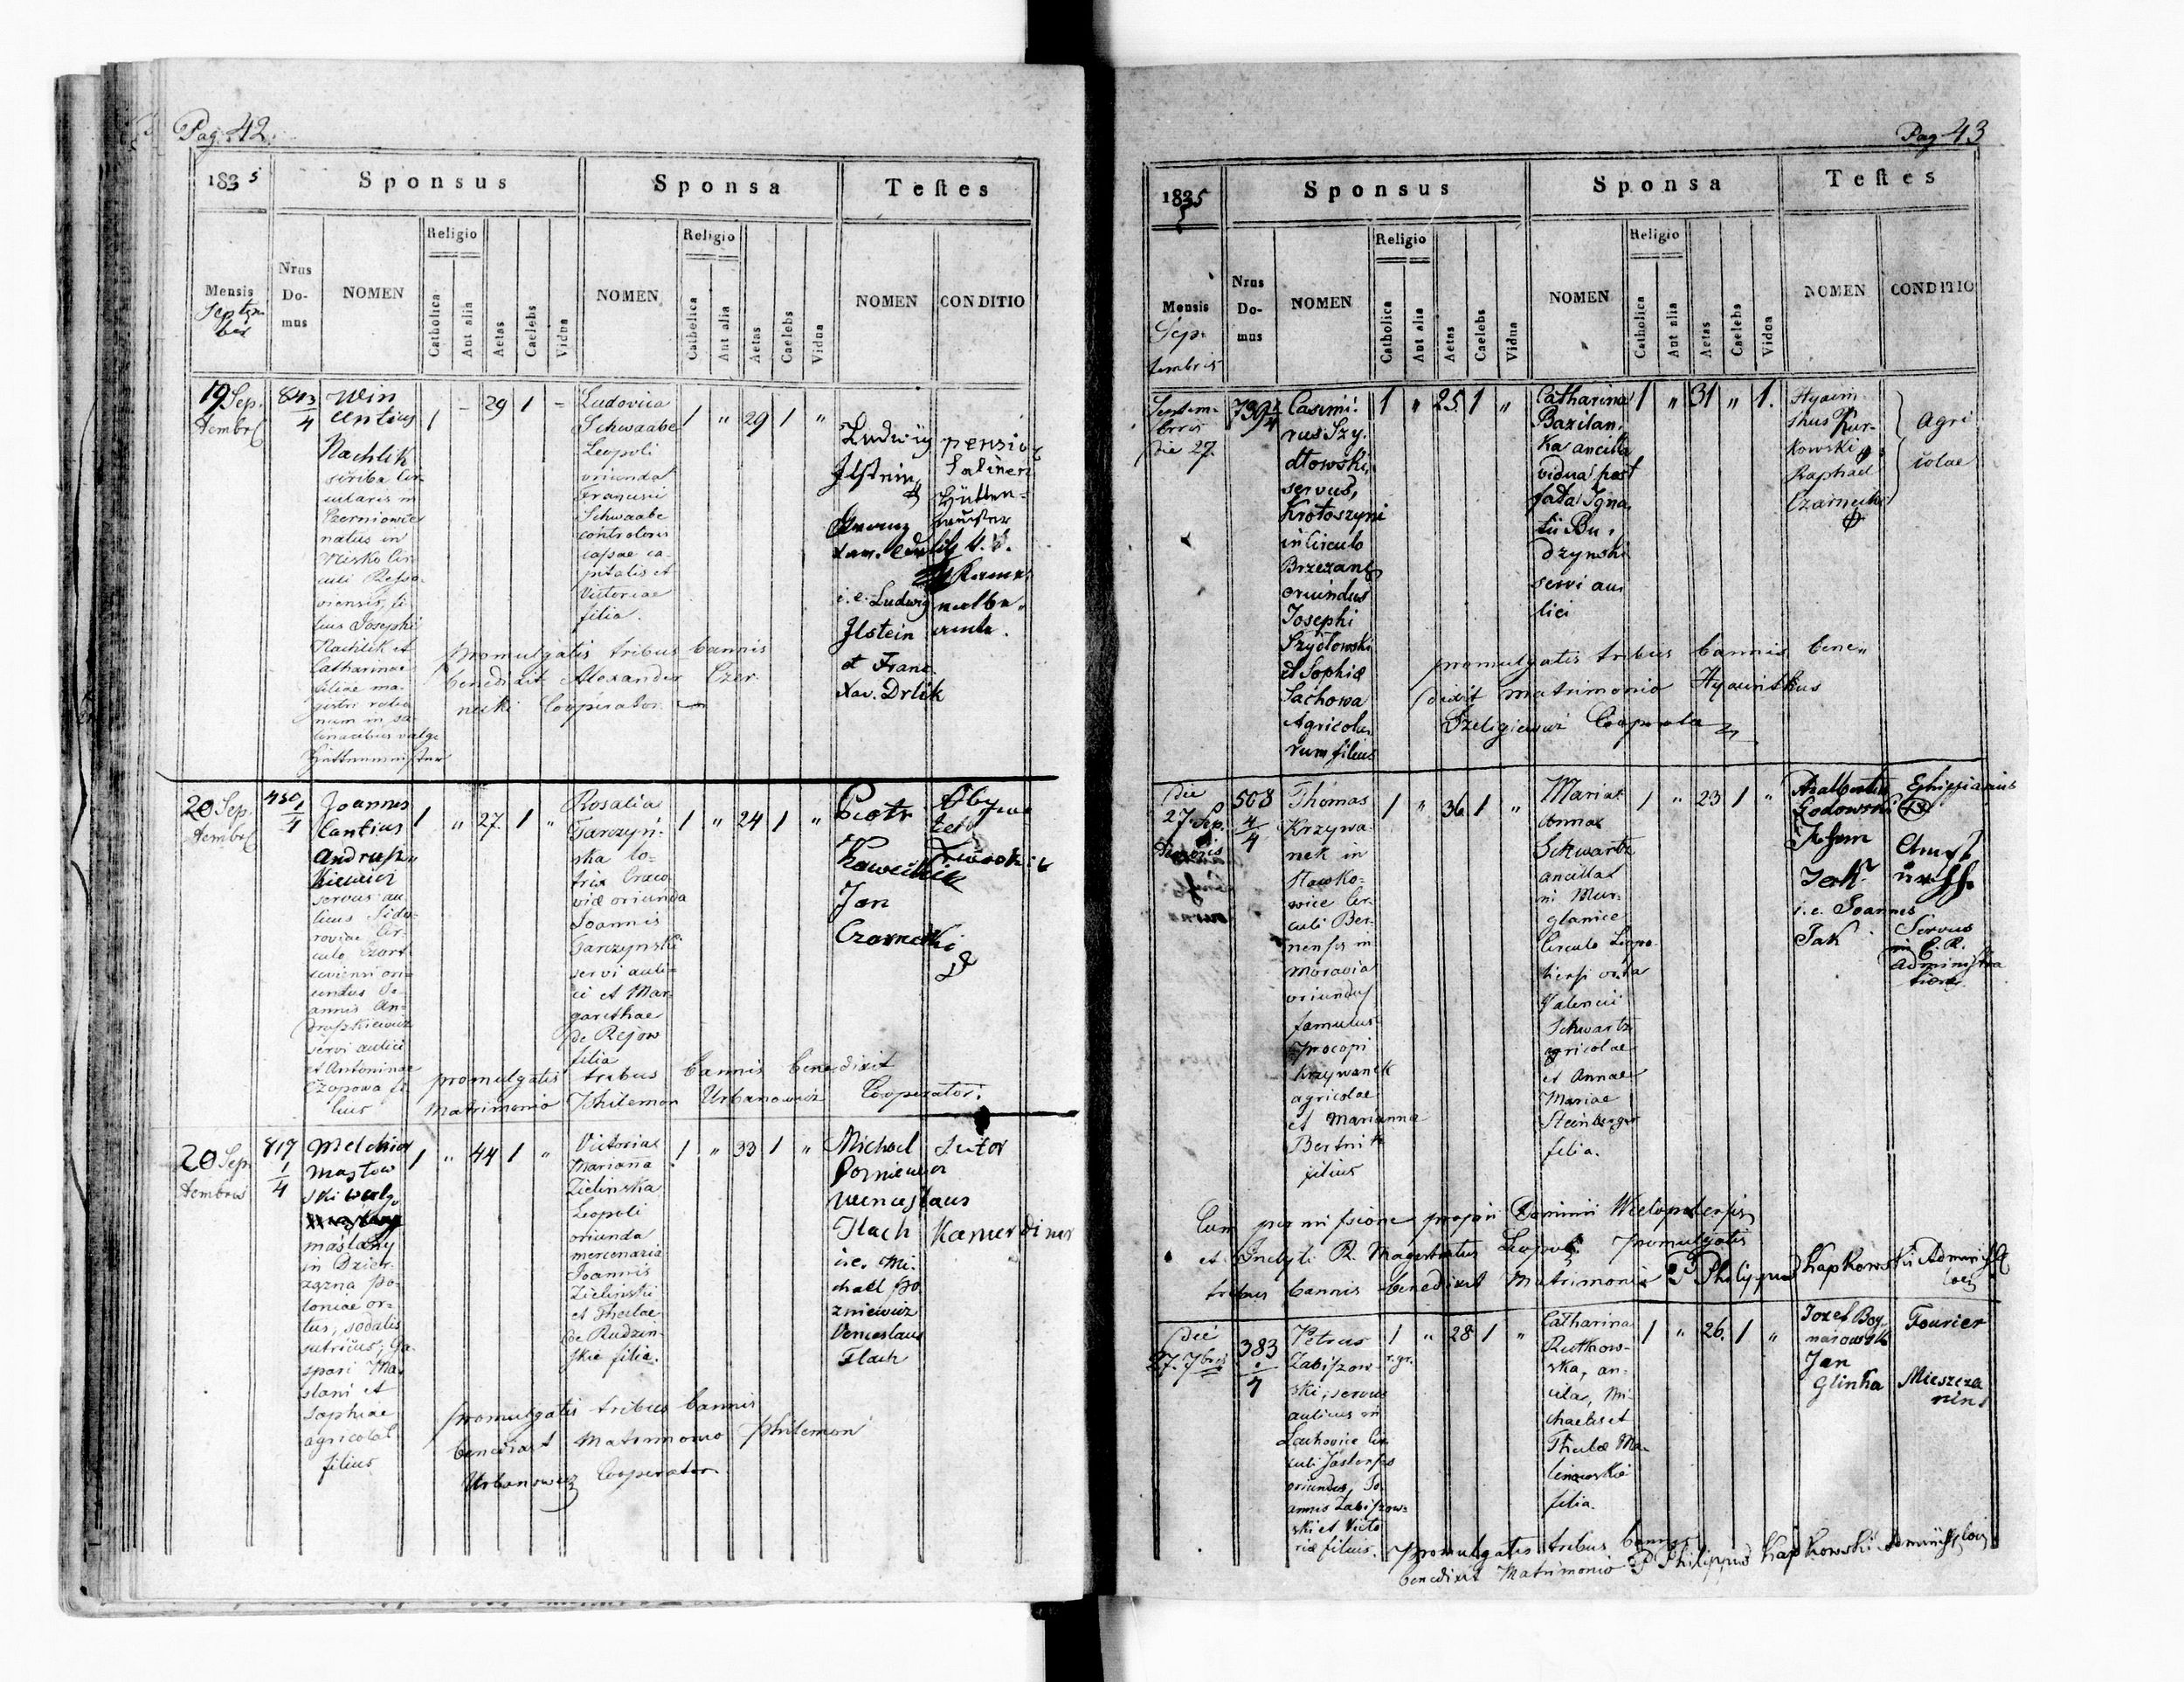 Pag. 42.
1835
Sponsus
Sponsa
Testes
Mensis
Septem
bris
Nrus
Do-
mus
NOMEN
Religio
Catholica
Aut alia
Aetas
Caelebs
Vidua
NOMEN
Religio
Catholica
Aut alia
Aetas
Caelebs
Vidua
NOMEN
CONDITIO
19 Sep.
tembr
843
4
Win
centius
Nachlik
scriba Cir-
cularis in
Czerniowce
natus in
Nisko Cir-
culi Rzeszo-
viensis, fi-
lius Josephi
Nachlik et
Catharinae
filiae ma-
gistri
Hüttenmeister
1 – 29 1 –
Ludovica
Schwaabe
Leopoli
oriunda
Francisci
Schwaabe
controloris
cassae ca-
pitalis et
Victoriae
filia.
1 " 29 1 "
Ludwig
Ilstein
i. e. Ludwig
Ilstein
et Franc
Xav. Drlik
Salinen
Hütten-
meister
promulgatis tribus bannis
benedixit Alexander Czer-
necki Cooperator
20 Sep.
tembr
450
1
4
Joannes
Cantius
Andrusz-
kiewicz
servus au-
licus Sido-
roviae Cir-
culo Czort-
coviensi ori-
undus Jo-
annis An-
druszkiewicz
servi aulici
et Antoninae
Czopowa fi-
lius
1 " 27. 1 "
Rosalia
Garczyń-
ska lo-
trix Craco-
viae oriunda
Joannis
Garczynski
servi auli-
ci et Mar-
garethae
de Rejow
filia
1 " 24 1 "
Piotr
Kawecki
Jan
Czarnecki
Obywa
tel
promulgatis tribus bannis benedixit
Matrimonio Philemon Urbanowicz Cooperator.
20 Sep
tembris
817
1
4
Melchior
Masłow
ski vulgo
maślany
in Dzier-
zązna Po-
loniae or-
tus, sodalis
sutricus, Ga-
spari Ma-
slani et
Sophiae
agricolae
filius
1 " 44 1 "
Victoria
Marianna
Zielinska
Leopoli
oriunda
mercenaria
Joannis
Zielinski
et Theclae
de Rudzin-
skie filia.
1 " 33 1 "
Michael
Wenceslaus
Flach
i. e. Mi-
chael Po
zniewicz
Venceslaus
Flach
Sutor
Kamerdiner
promulgatis tribus bannis
benedixit Matrimonio Philemon
Urbanowicz Cooperator
Pag 43
1835
Sponsus
Sponsa
Testes
Mensis
Sep-
tembris
Nrus
Do-
mus
NOMEN
Religio
Catholica
Aut alia
Aetas
Caelebs
Vidua
NOMEN
Religio
Catholica
Aut alia
Aetas
Caelebs
Vidua
NOMEN
CONDITIO
Septem-
bris
Die 27.
739
4
Casimi-
rus Szy-
dłowski,
servus,
Krotoszyni
in Circulo
Brzezan
oriundus
Josephi
Szydłowski
et Sophiæ
Sachowa
Agricola-
rum filius
1 " 25. 1 "
Catharina
Bazilan-
ka ancilla
vidua post
fata Igna-
tii Bu-
dzynski
servi au-
lici
1 " 31 " 1.
Hyacin-
thus Kur-
kowski
Raphael
Czarnecki
Agri
colae
promulgatis tribus bannis bene-
dixit matrimonio Hyacinthus
Szeligiewicz Cooperator
Die
27. Sep.
508
4
4
Thomas
Krzywa-
nek in
Slawko-
wice Cir-
culi Ber-
nensis in
Moravia
oriundus
famulus
Procopi
Krzywanek
agricolae
et Marianna
filius
1 " 36 1 "
Maria
Anna
Schwartz
ancilla
in Mur-
glanice
Circulo Leopo-
liensi orta
Valencii
Schwartz
agricolae
et Annae
Mariae
Steinberger
filia.
1 " 23 1 "
Adalbertus
Godowski
Johan
Jack
i. e. Joannes
Jak
Ephippiarius
Servus
in C. R.
Administra
tione
Cum permissione proprii Dominii Wielopolensis
et Inclyti R. Magistratus Leopol. promulgatis
tribus bannis benedixit Matrimonio P Philippus Kapkowski
Die
27. 7bris
383
4
Petrus
Zabiszow-
ski, servus
aulicus in
Lachovice Cir-
culi Jaslensis
oriundus, Jo-
annis Zabiszow-
ski et Victo-
riæ filius.
1 " 28 1 "
r. gr.
Catharina
Rutkow-
ska, an-
cilla, Mi-
chaelis et
Theclæ Ma-
linowskie
filia.
1 " 26. 1 "
Jozef
Jan
Glinka
Fourier
Mieszcza
nin
promulgatis tribus bannis
benedixit Matrimonio P Philippus Kapkowski